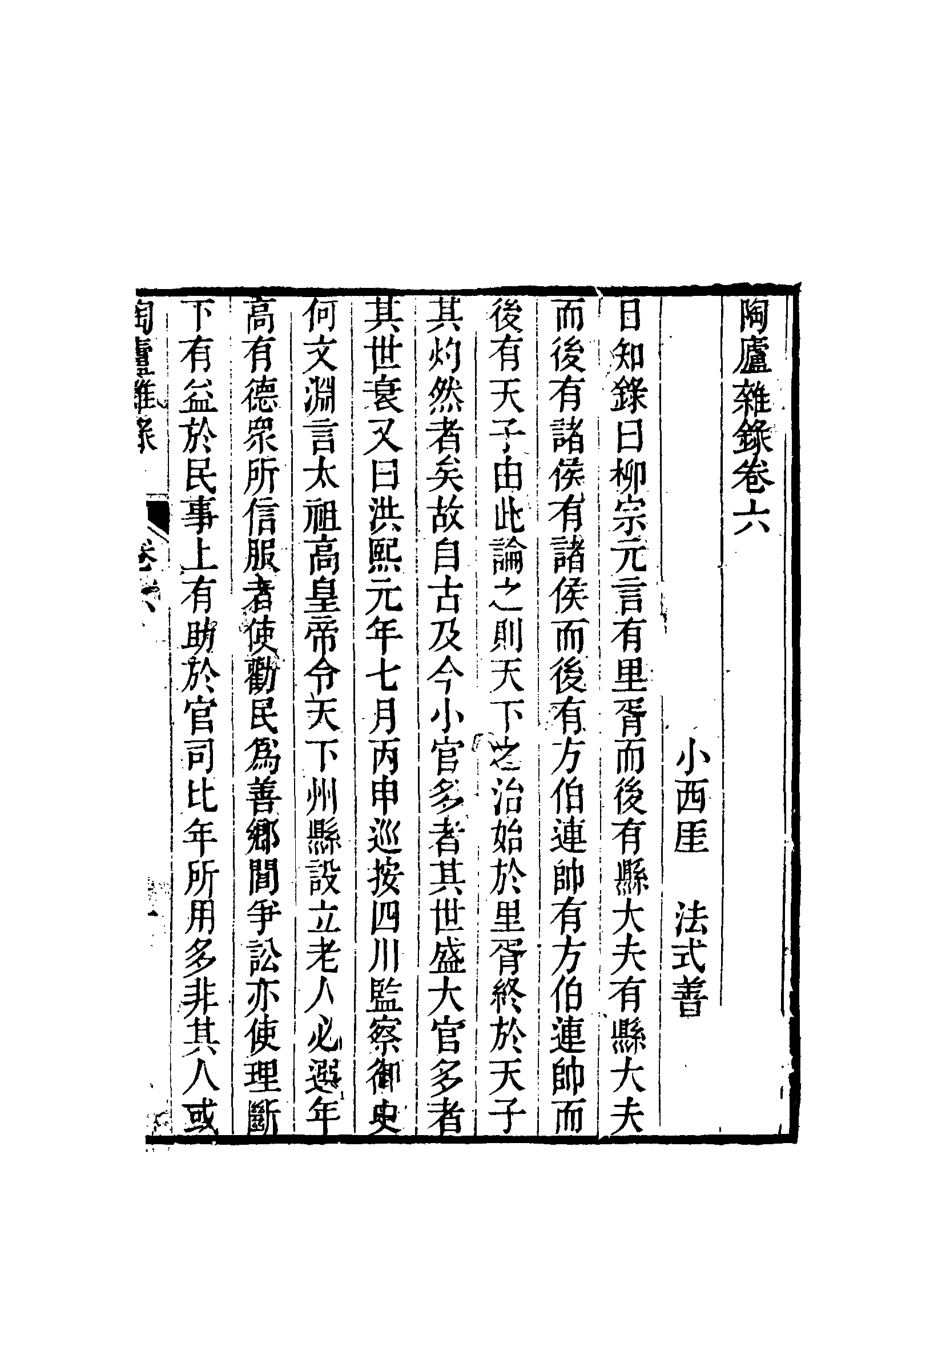 陶廬雜錄卷六
小西厓 法式善
日知錄曰柳宗元言有里胥而後有縣大夫有縣大夫
而後有諸侯有諸侯而後有方伯連帥有方伯連帥而
後有天子由此論之則天下之治始於里胥終於天子
其灼然者矣故自古及今小官多者其世盛大官多者
其世衰又曰洪熙元年七月丙申巡按四川監察御史
何文淵言太祖高皇帝令天下州縣設立老人必選年
高有德衆所信服者使勸民爲善鄉閭爭訟亦使理斷
下有益於民事上有助於官司比年所用多非其人或
陶廬雜錄 卷六 一